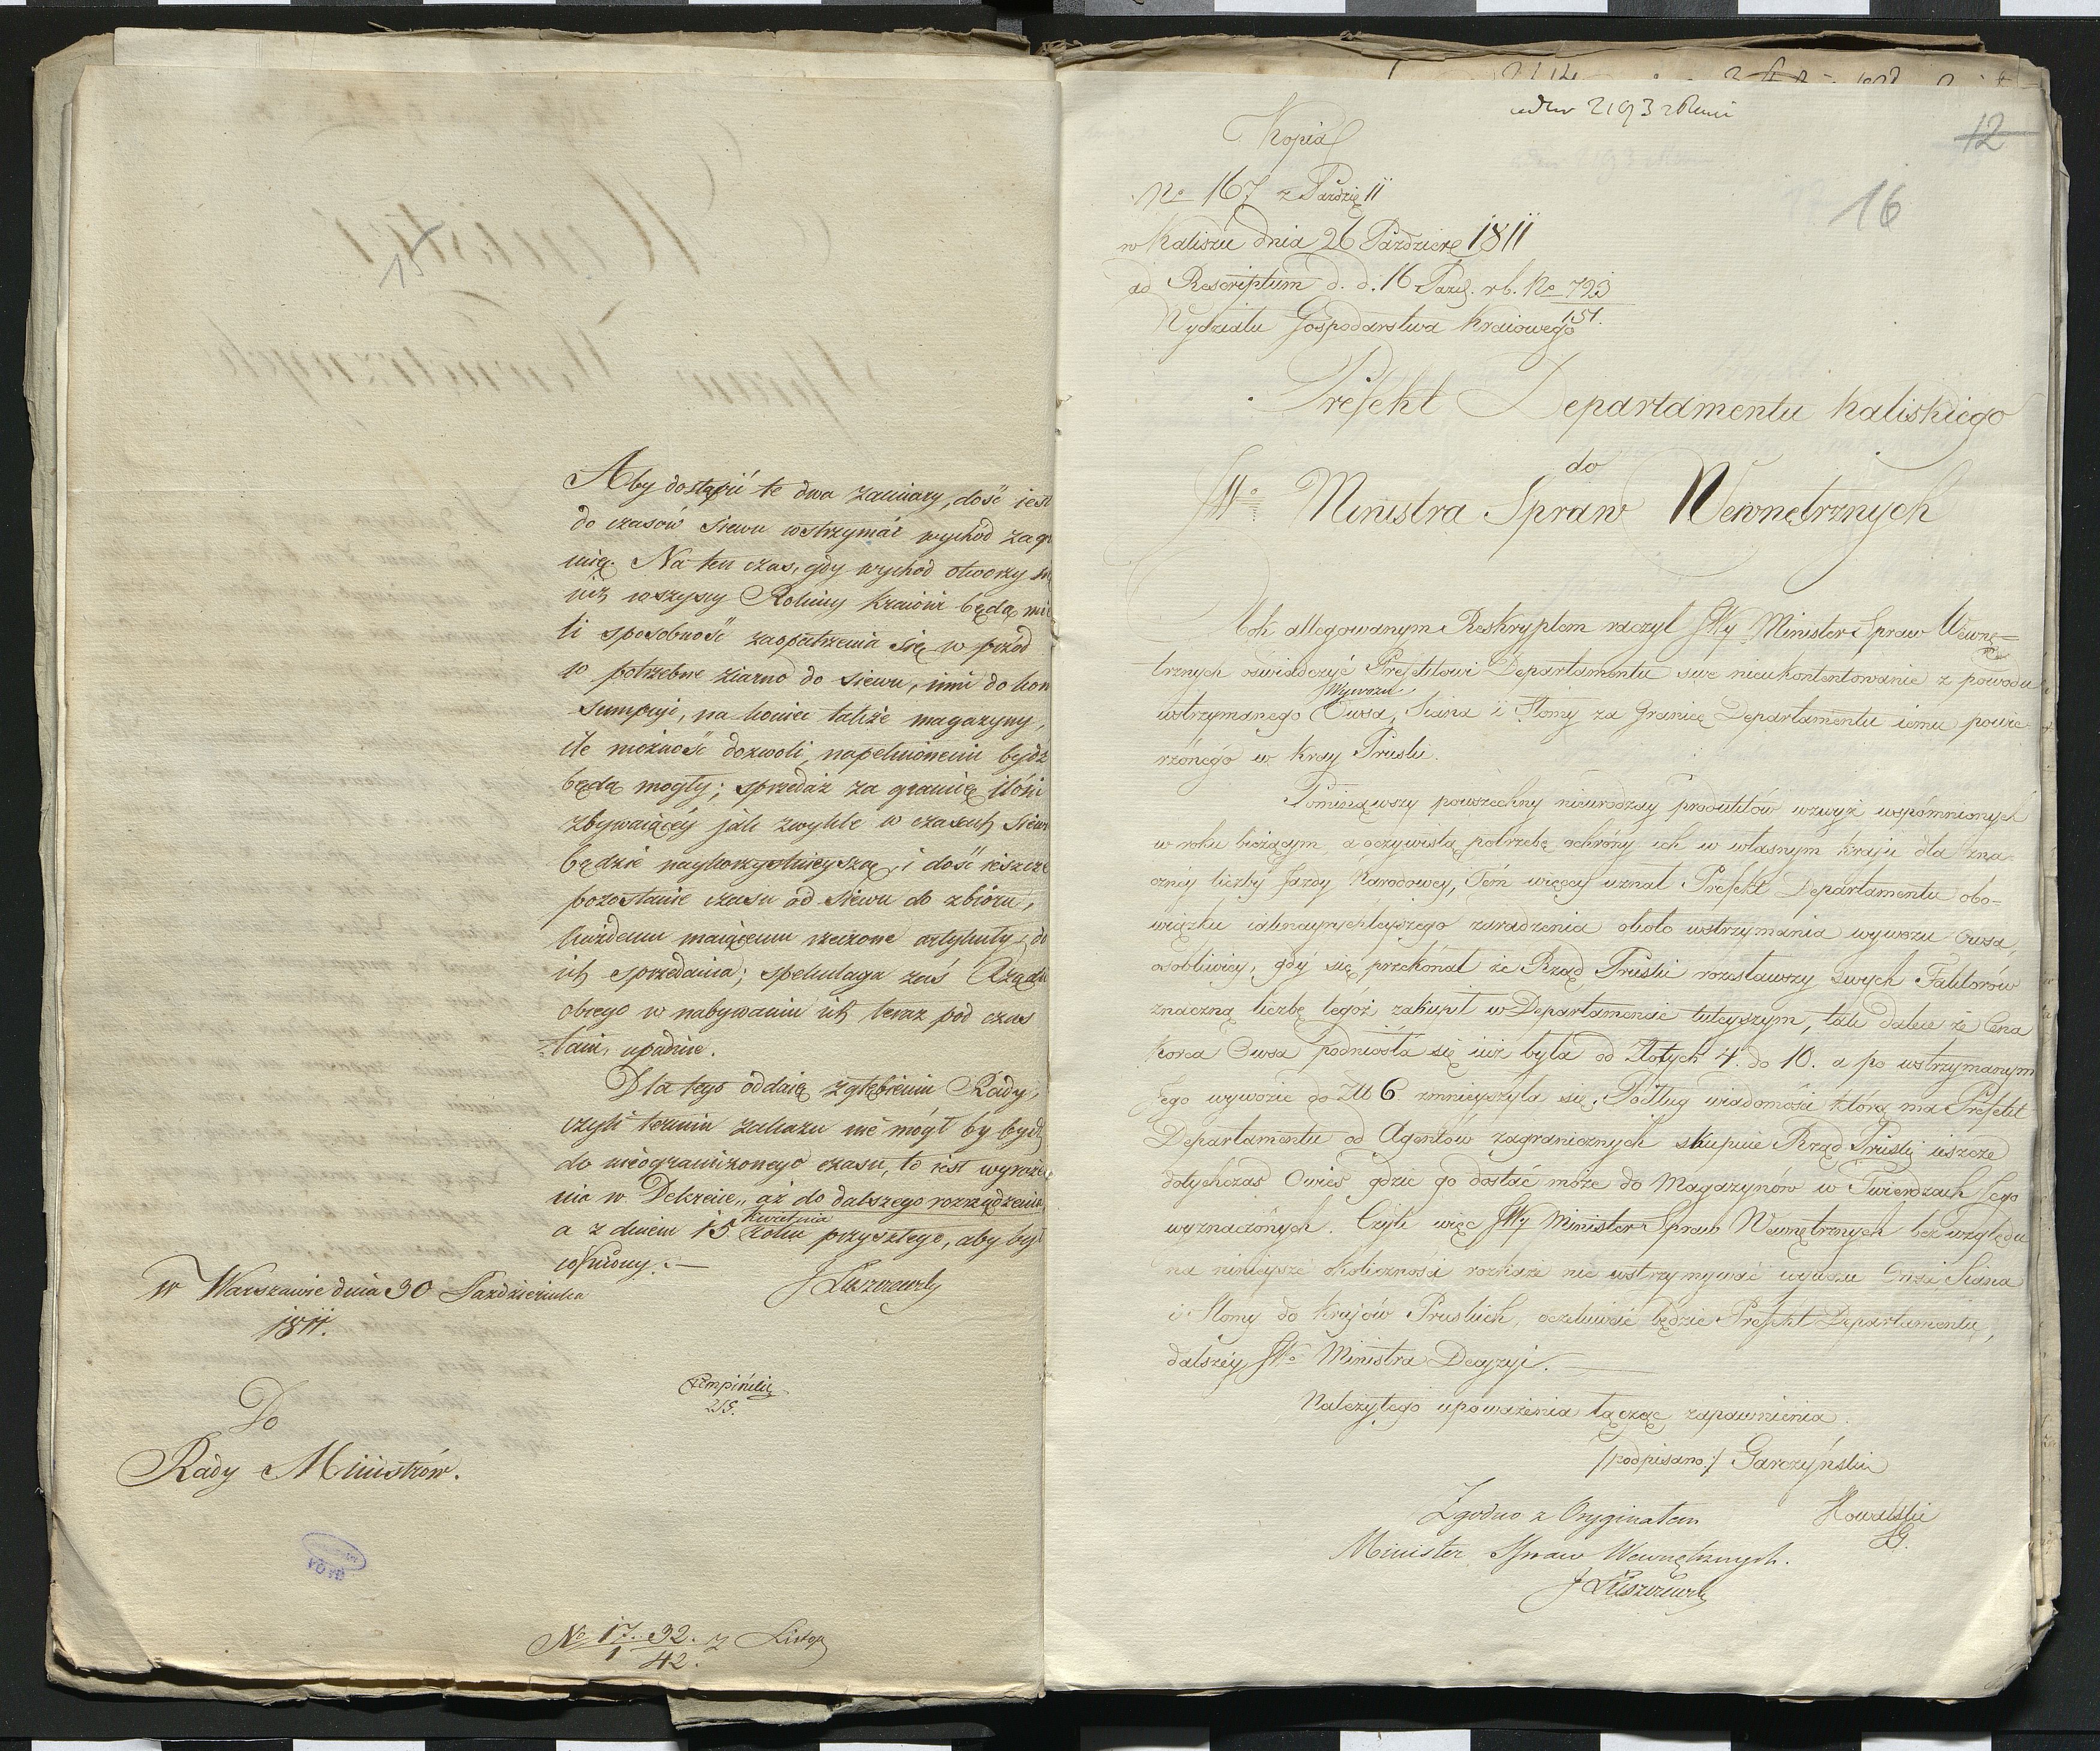 Aby dostąpić te dwa zamiary, dość iest
do czasów siewu wstrzymać wychód za gr
nicę. Na ten czas, gdy wychód otworzy się
niż wszyscy Rolnicy kraiowi będą mie
li sposobność zaopatrzenia się w przód
w potrzebne ziarno do siewu, inni do kon
sumpcyi, na koniec także magazyny,
ile możność dozwoli, napełnionemi bydź
będą mogły; sprzedaż za granicę ilości
zbywaiącéy jak zwykle w czasach siewu
będzie naykorzystnieyszą, i dość ieszcze
pozostanie czasu od siewu do zbioru,
każdemu maiącemu rzeczone artykuły, do
ich sprzedania; spekulacya zaś Rządu
obcego w nabywaniu ich teraz pod czas
tani, upadnie.
Dla tego oddaię zgłębieniu Rady,
czyli termin zakazu nie mógł by bydź
do nieograniczonego czasu, to iest wyraże
nia w Dekrecie „aż do dalszego rozrządzenia
a z dniem 15 Kwietnia roku przyszłego, aby był
cofniony. —
J Łuszczewski
w Warszawie dnia 30 Października
1811.
Do
Rady Ministrów.
No 17. 32. z Listop
1 42.
2193
12
16
Kopia
No 167 z Paździe 11
w Kaliszu dnia 26 Paździer 1811
ad Rescriptum d. d. 16 Paźd. r b. No 723
151.
Wydziału Gospodarstwa Kraiowego
Prefekt Departamentu Kaliskiego
do
JWo Ministra Spraw Wewnętrznych
allegowanym Reskryptem raczył JWy Minister Spraw Wewnę=
trznych oświadczyć Prefektowi Departamentu swe nieukontentowanie z powodu
wstrzymanego Wywozu Owsa, Siana i Słomy za Granicę Departamentu iemu powie
rzonego w Kray Pruski.
Pominąwszy powszechny nieurodzay produktów wzwyż wspomnionych
w roku bieżącym, a oczywistą potrzebę ochrony ich w własnym kraju dla zna=
cznéy liczby Jazdy Narodowey, Tém więcey uznał Prefekt Departamentu obo=
wiązku iaknayrychleyszego zaradzenia około wstrzymania wywozu Owsa,
osobliwiey, gdy się przekonał że Rząd Pruski rozesławszy swych Faktorów
znaczną liczbę tegoż zakupił w Departamencie tuteyszym, tak dalece że Cena
Korca Owsa podniosła się iuż była od Złotych 4. do 10. a po wstrzymanym
Jego wywozie do Zł 6 zmnieyszyła się. Podług wiadomości którą ma Prefekt
Departamentu od Agentów zagranicznych skupuie Rząd Pruski ieszcze
dotychczas Owies gdzie go dostać może do Magazynów w Twierdzach Jego
wyznaczonych. Czyli więc JWy Minister Spraw Wewnętrznych bez względu
na ninieysze okoliczności rozkaże nie wstrzymywać wywozu Owsa, Siana
i Słomy do Krajów Pruskich, oczekiwać będzie Prefekt Departamentu,
dalszéy JWo Ministra Decyzyi.
Należytego upoważenia łączę zapewnienia.
/podpisano:/ Garczyński
Zgodno z Oryginałem
Minister Spraw Wewnętrznych.
J Łuszczewski